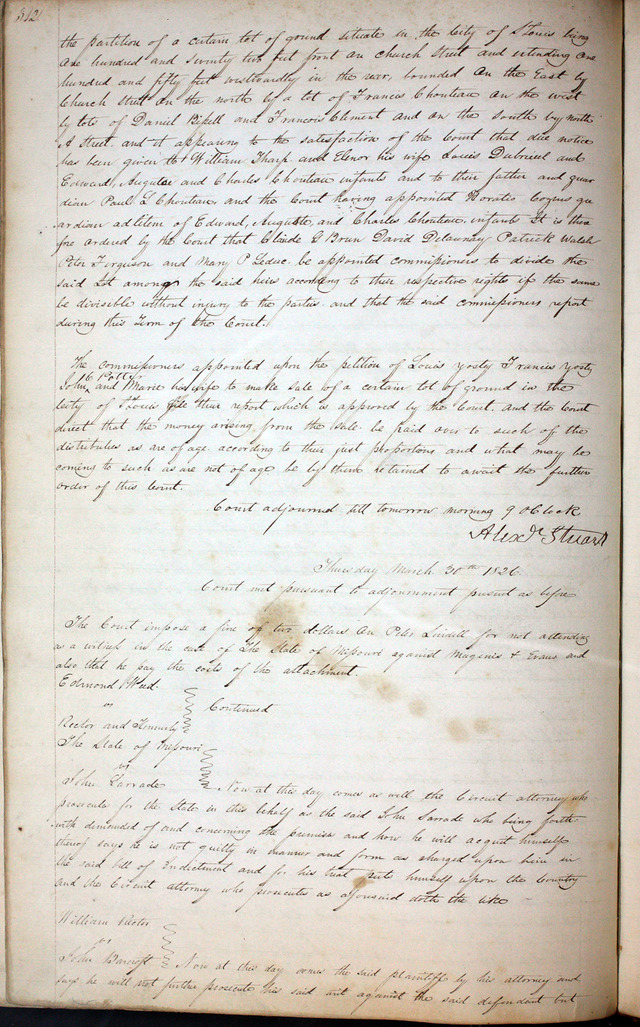 312
the partition of a certain lot of ground situate in the City of St Louis being
one hundred and seventy two feet front on Church Street and extending one
hundred and fifty feet westwardly in the rear, bounded on the East by
Church Street on the north by a lot of Francis Chouteau on the west
by lots of Daniel Bissell and Francois Clement and on the south by north
A Street. and it appearing to the satisfaction of the Court that due notice
has been given to William Tharp and Elenor his wife Louis Dubreuil and
Edward, Auguste and Charles Chouteau infants and to their father and guar
dian Paul L Chouteau and the Court having appointed Horatio Cozens gu
ardian ad litem of Edward, Auguste, and Charles Chouteau, infants It is there
fore ordered by the Court that Claude G Brun David Delaunay Patrick Walsh
Peter Ferguson and Mary P Leduc be appointed commissioners to divide the
said Lot among the said heirs according to their respective rights if the same
be divisible without injury to the parties and that the said commissioners report
during this Term of the Court.
The commissioners appointed upon the petition of Louis Yosty Francis Yosty
John H Potts and Marie his wife to make sale of a certain lot of ground in the
City of St Louis file their report which is approved by the Court. and the Court
direct that the money arising from the sale be paid over to such of the
distributees as are of age according to their just proportions and what may be
coming to such as are not of age be by them retained to await the further
order of this Court.
Court adjourned till tomorrow morning 9 oClock
Alexdr Stuart
Thursday March 30th 1826.
Court met pursuant to adjournment present as before
The Court impose a fine of two dollars on Peter Lindell for not attending
as a witness in the case of The State of Missouri against Maginis & Evans and
also that he pay the costs of the attachment.
Edmond
vs
Continued
Rector and
The State of Missouri
vs
John Larrade Now at this day comes as well the Circuit attorney who
prosecutes for the State in this behalf as the said John Larrade who being forth
with demanded of and concerning the premises and how he will acquit himself
thereof says he is not guilty in manner and form as charged upon him in
the said bill of Indictment and for his trial puts himself upon the Country
and the Circuit attorney who prosecutes as aforesaid doth the like
William Rector
vs
John Bancroft Now at this day comes the said plaintiff by his attorney and
says he will not further prosecute his said suit against the said defendant but